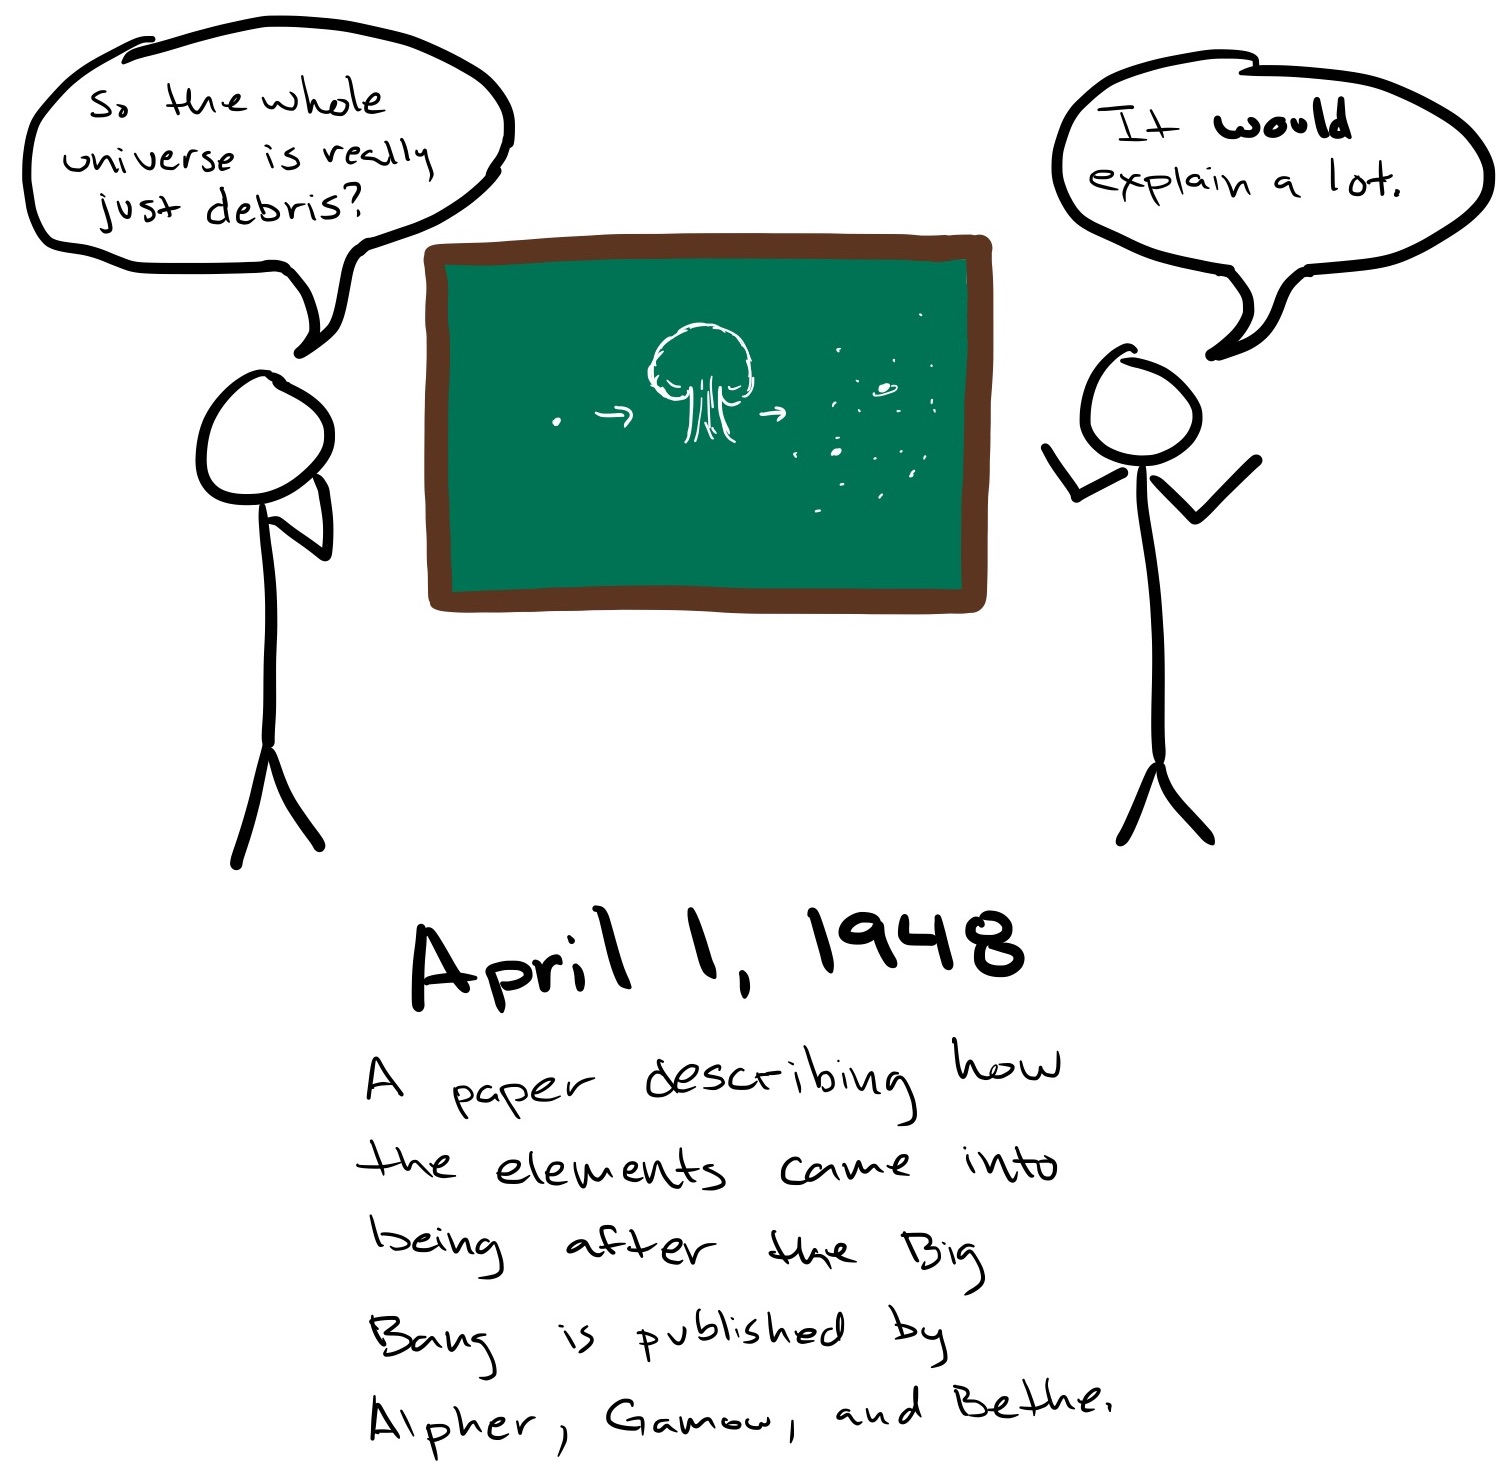 So the whole
universe is really
just debris?
It would
explain a lot.
April 1, 1948
A paper describing how
the elements came into
being after the Big
Bang is published by
Alpher, Gamow, and Bethe.